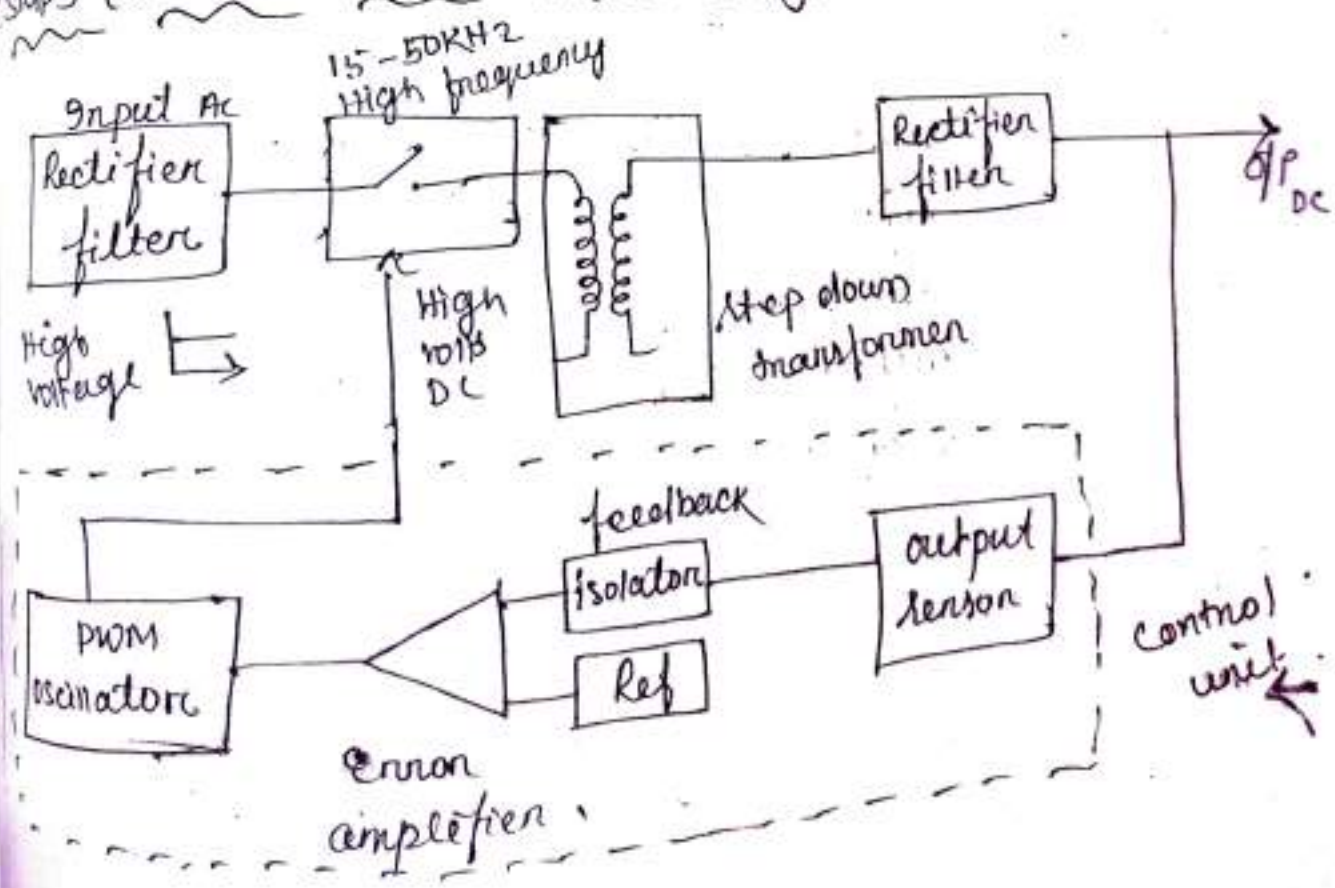 Input AC
Rectifier
filter
High
voltage
15-50KHz
High frequency
High
volt
DC
Step down
transformer
Rectifier
filter
O/P DC
feedback
isolator
Ref
output
sensor
control
unit
PWM
oscillator
Error
amplifier